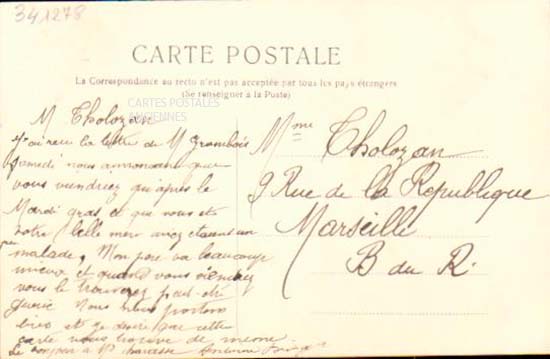 341278
CARTE POSTALE
La Correspondance au recto n'est pas acceptée par tous les pays étrangers
(Se renseigner à la Poste)
CARTES POSTALES
ANCIENNES
M Tholozan
J'ai recu la lettre de M
Samedi nous annoncant que
vous viendriez qu'après le
Mardi gras et que vous et
votre belle mère avez étaient un
peu malade, Mon père va beaucoup
mieux et quand vous viendrez
vous le trouverez peut-etre
guerie Nous nous portons
bien et je desire que cette
carte vous trouve de meme
Le bonjour a Mr
Mme Tholozan
9 Rue de la Republique
Marseille
B du R.